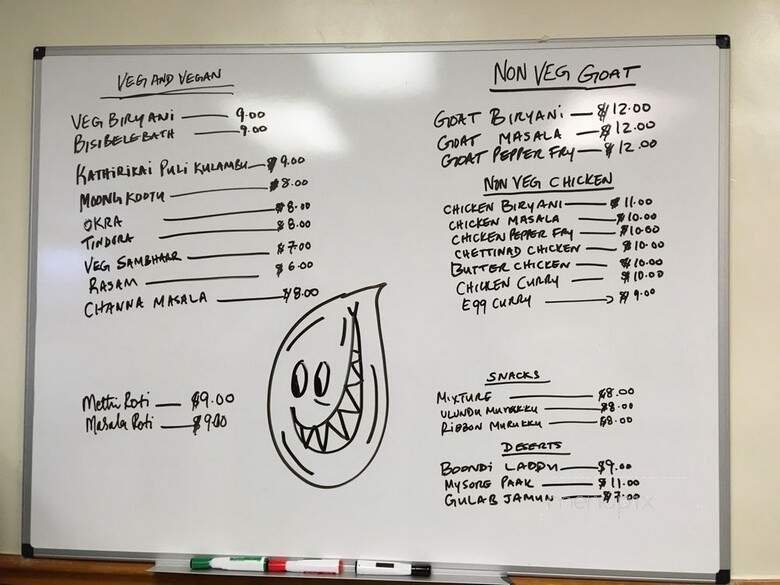 VEG AND VEGAN
VEG BIRYANI — 9.00
BISIBELEBATH — 9.00
KATHIRIKAI PULI KULAMBU — $9.00
MOONG KOOTU — $8.00
OKRA — $8.00
TINDORA — $8.00
VEG SAMBHAAR — $7.00
RASAM — $6.00
CHANNA MASALA — $8.00
Methi Roti — $9.00
Masala Roti — $9.00
NON VEG GOAT
GOAT BIRYANI — $12.00
GOAT MASALA — $12.00
GOAT PEPPER FRY — $12.00
NON VEG CHICKEN
CHICKEN BIRYANI — $11.00
CHICKEN MASALA — $10.00
CHICKEN PEPPER FRY — $10.00
CHETTINAD CHICKEN — $10.00
BUTTER CHICKEN — $10.00
CHICKEN CURRY — $10.00
EGG CURRY — $9.00
SNACKS
MIXTURE — $8.00
ULUNDU MURUKKU — $8.00
RIBBON MURUKKU — $8.00
DESERTS
BOONDI LADDU — $9.00
MYSORE PAAK — $11.00
GULAB JAMUN — $7.00